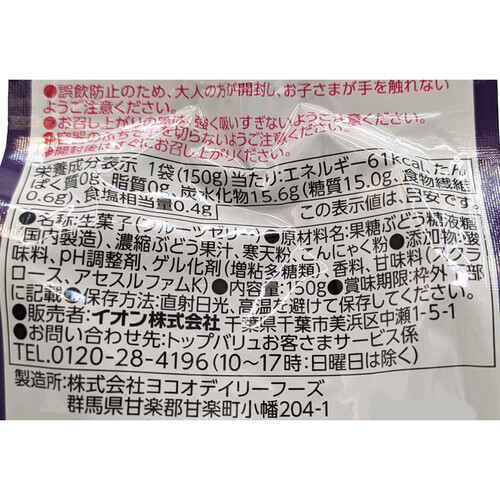 ●誤飲防止のため、大人の方が開封し、お子さまが手を触れない
ようご注意ください。
●お召し上がりの際は、強く吸いすぎないようご注意ください。
●容器のふちで手を切らないようご注意ください。
●開封後はすぐにお召し上がりください。
栄養成分表示 1袋(150g)当たり:エネルギー61kcal、たん
ぱく質0g、脂質0g、炭水化物15.6g(糖質15.0g、食物繊維
0.6g)、食塩相当量0.4g この表示値は、目安です。
●名称:生菓子(フルーツゼリー)●原材料名:果糖ぶどう糖液糖
(国内製造)、濃縮ぶどう果汁、寒天粉、こんにゃく粉●添加物:酸
味料、pH調整剤、ゲル化剤(増粘多糖類)、香料、甘味料(スクラ
ロース、アセスルファムK)●内容量:150g●賞味期限:枠外下部
に記載●保存方法:直射日光、高温を避けて保存してください。
●販売者:イオン株式会社 千葉県千葉市美浜区中瀬1-5-1
●お問い合わせ先:トップバリュお客さまサービス係
TEL.0120-28-4196(10～17時:日曜日は除く)
製造所:株式会社ヨコオデイリーフーズ
群馬県甘楽郡甘楽町小幡204-1